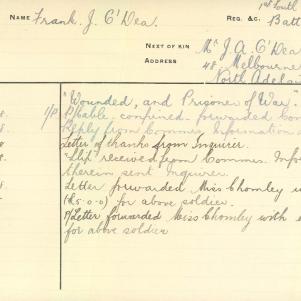 1st South
NAME Frank. J. O'Dea. REG. &C. Batt
NEXT OF KIN Mr J. A. O'Dea
ADDRESS 48 Melbourne
North Adela
"Wounded, and Prisoner of War."
8. 1/P P/Cable, confined forwarded Com
8. Reply from Commrs Information
Letter of thanks from Inquirer.
"Slip" received from Commrs. Infor
therein sent Inquirer.
8 Letter forwarded Miss Chomley w
(£5.0.0) for above soldier.
P/Letter forwarded Miss Chomley with
for above soldier